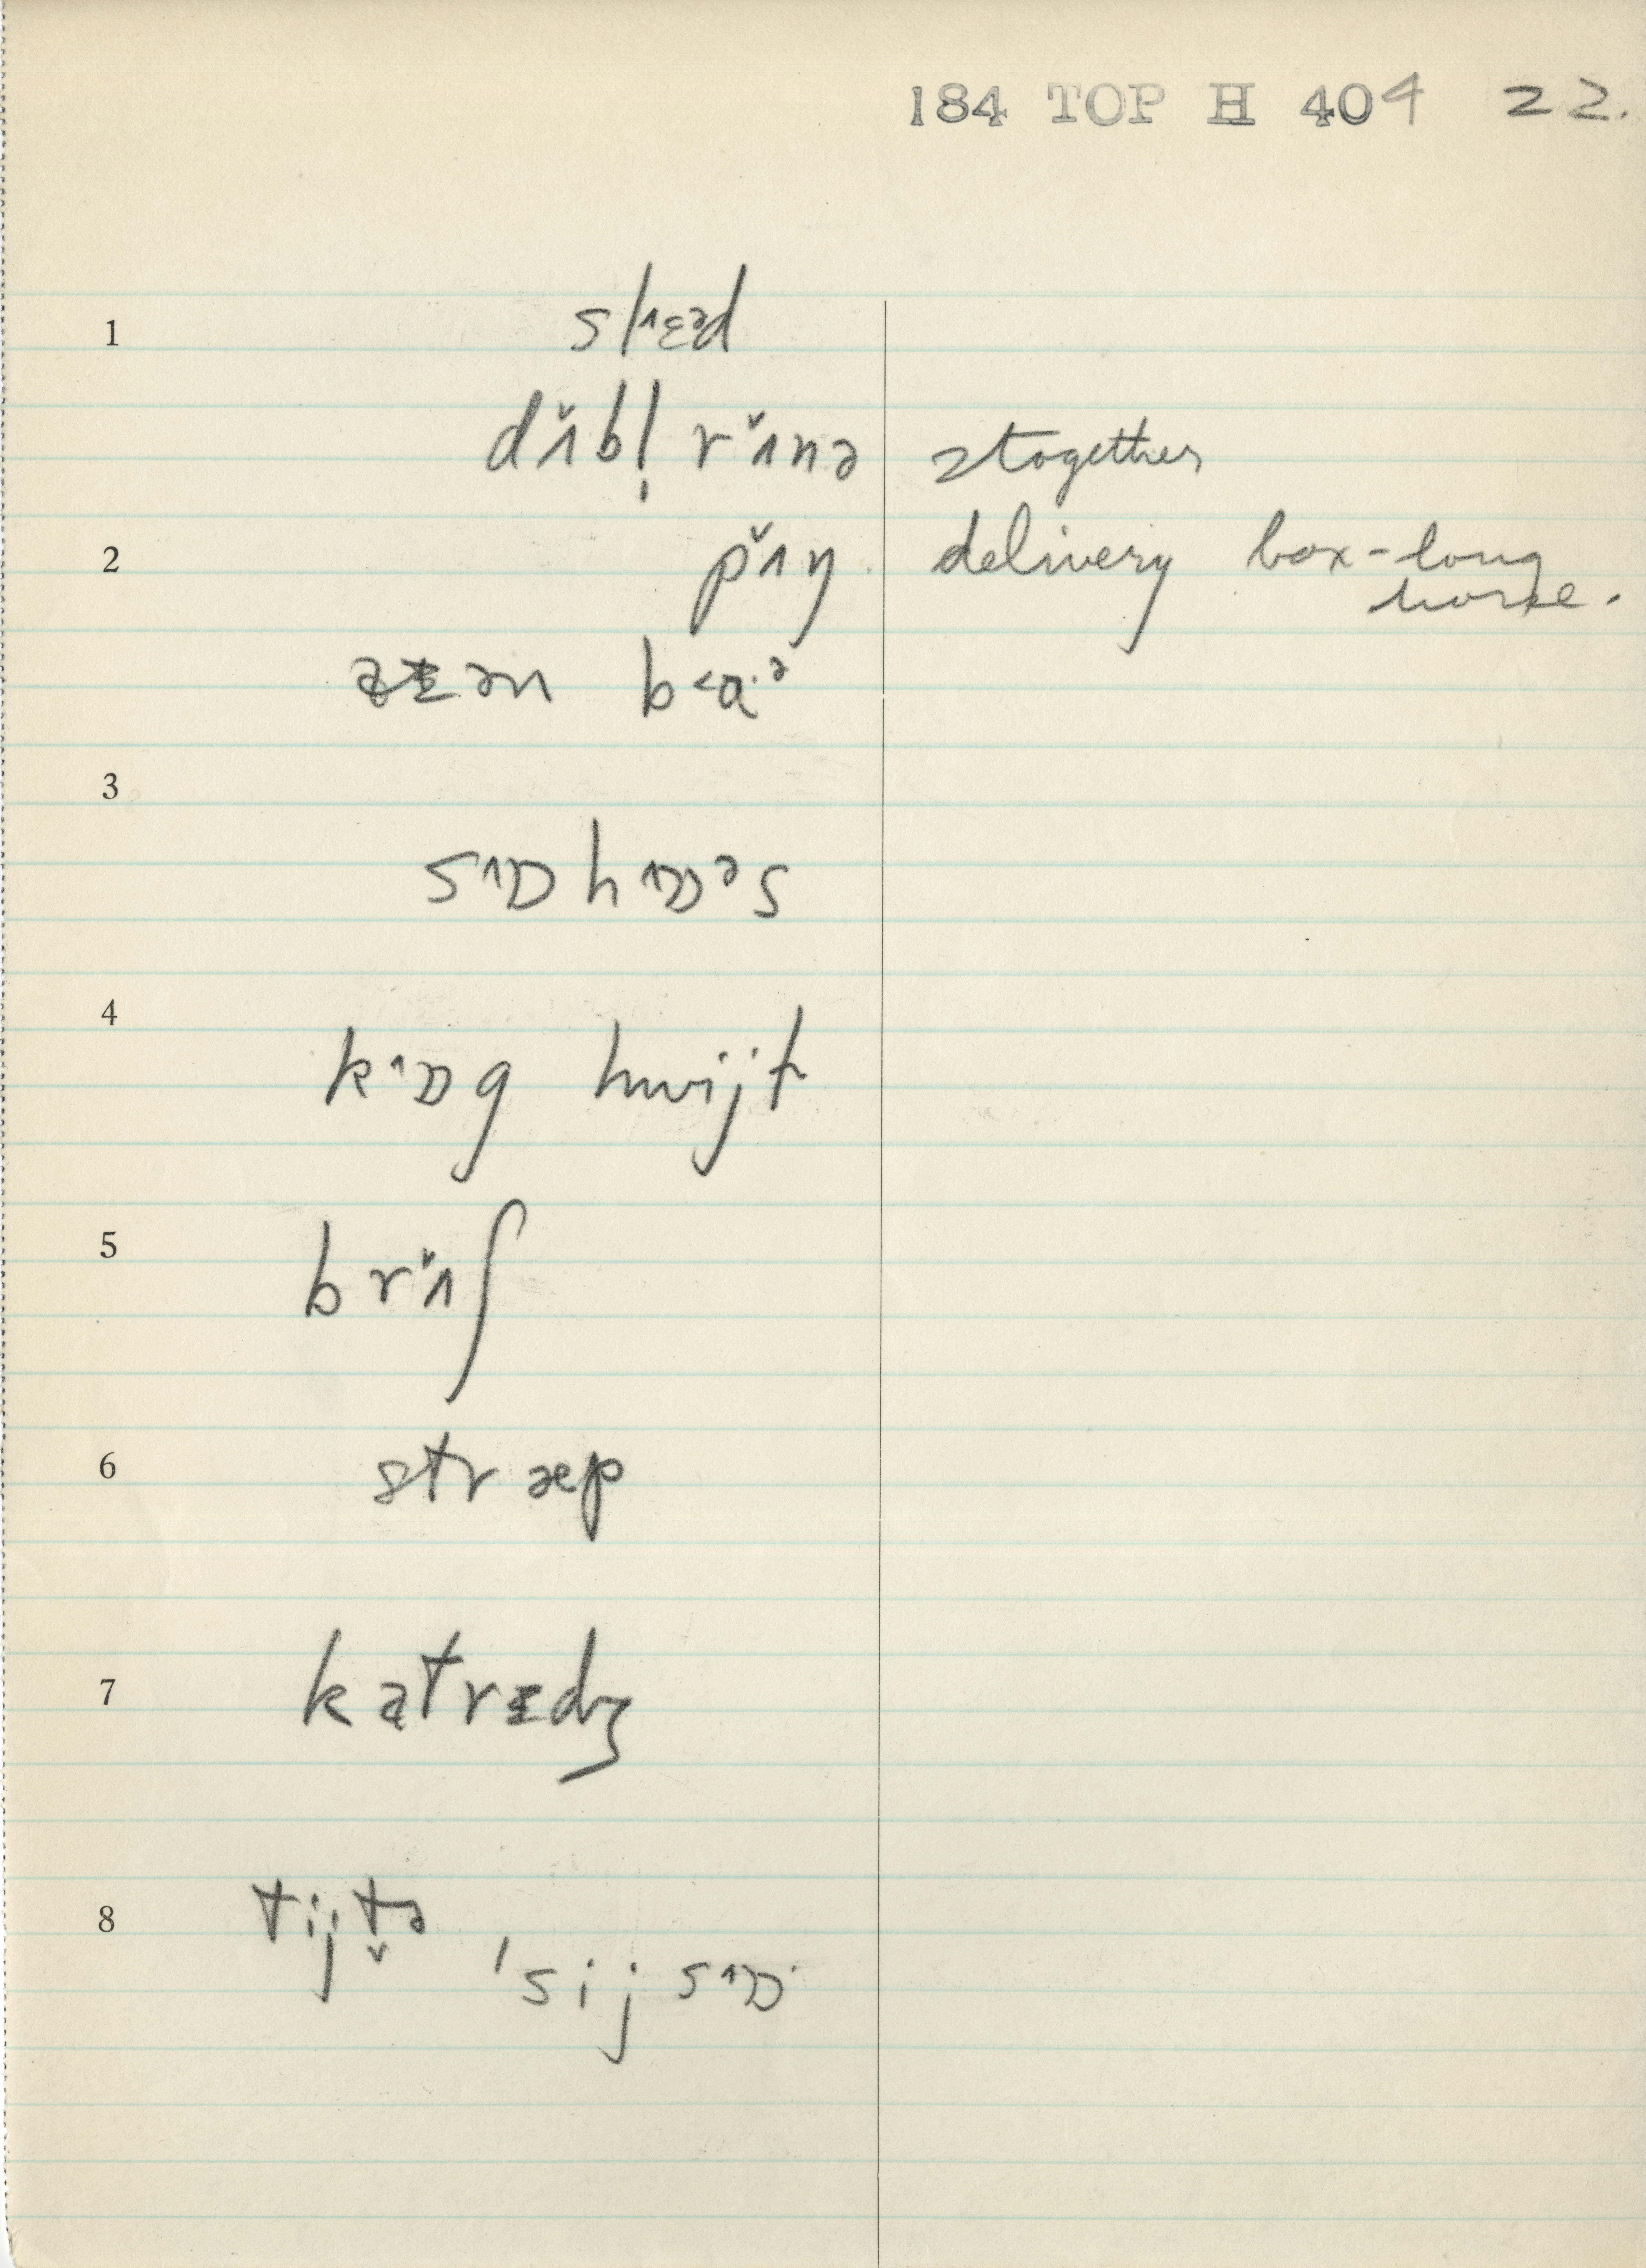 184 TOP H 404 22.
1
slɛəd
dʌ̌bl̩ rʌ̌nə 2 together
2
pʌ̌ŋ delivery box-long
horse.
ən b a·ᵊ
3
sɒ hɒᵊs
4
kɒg hwijt
5
brʌ̌ʃ
6
stræp
7
katrɪdʒ
8
tijt̬ə
'sijsɒ